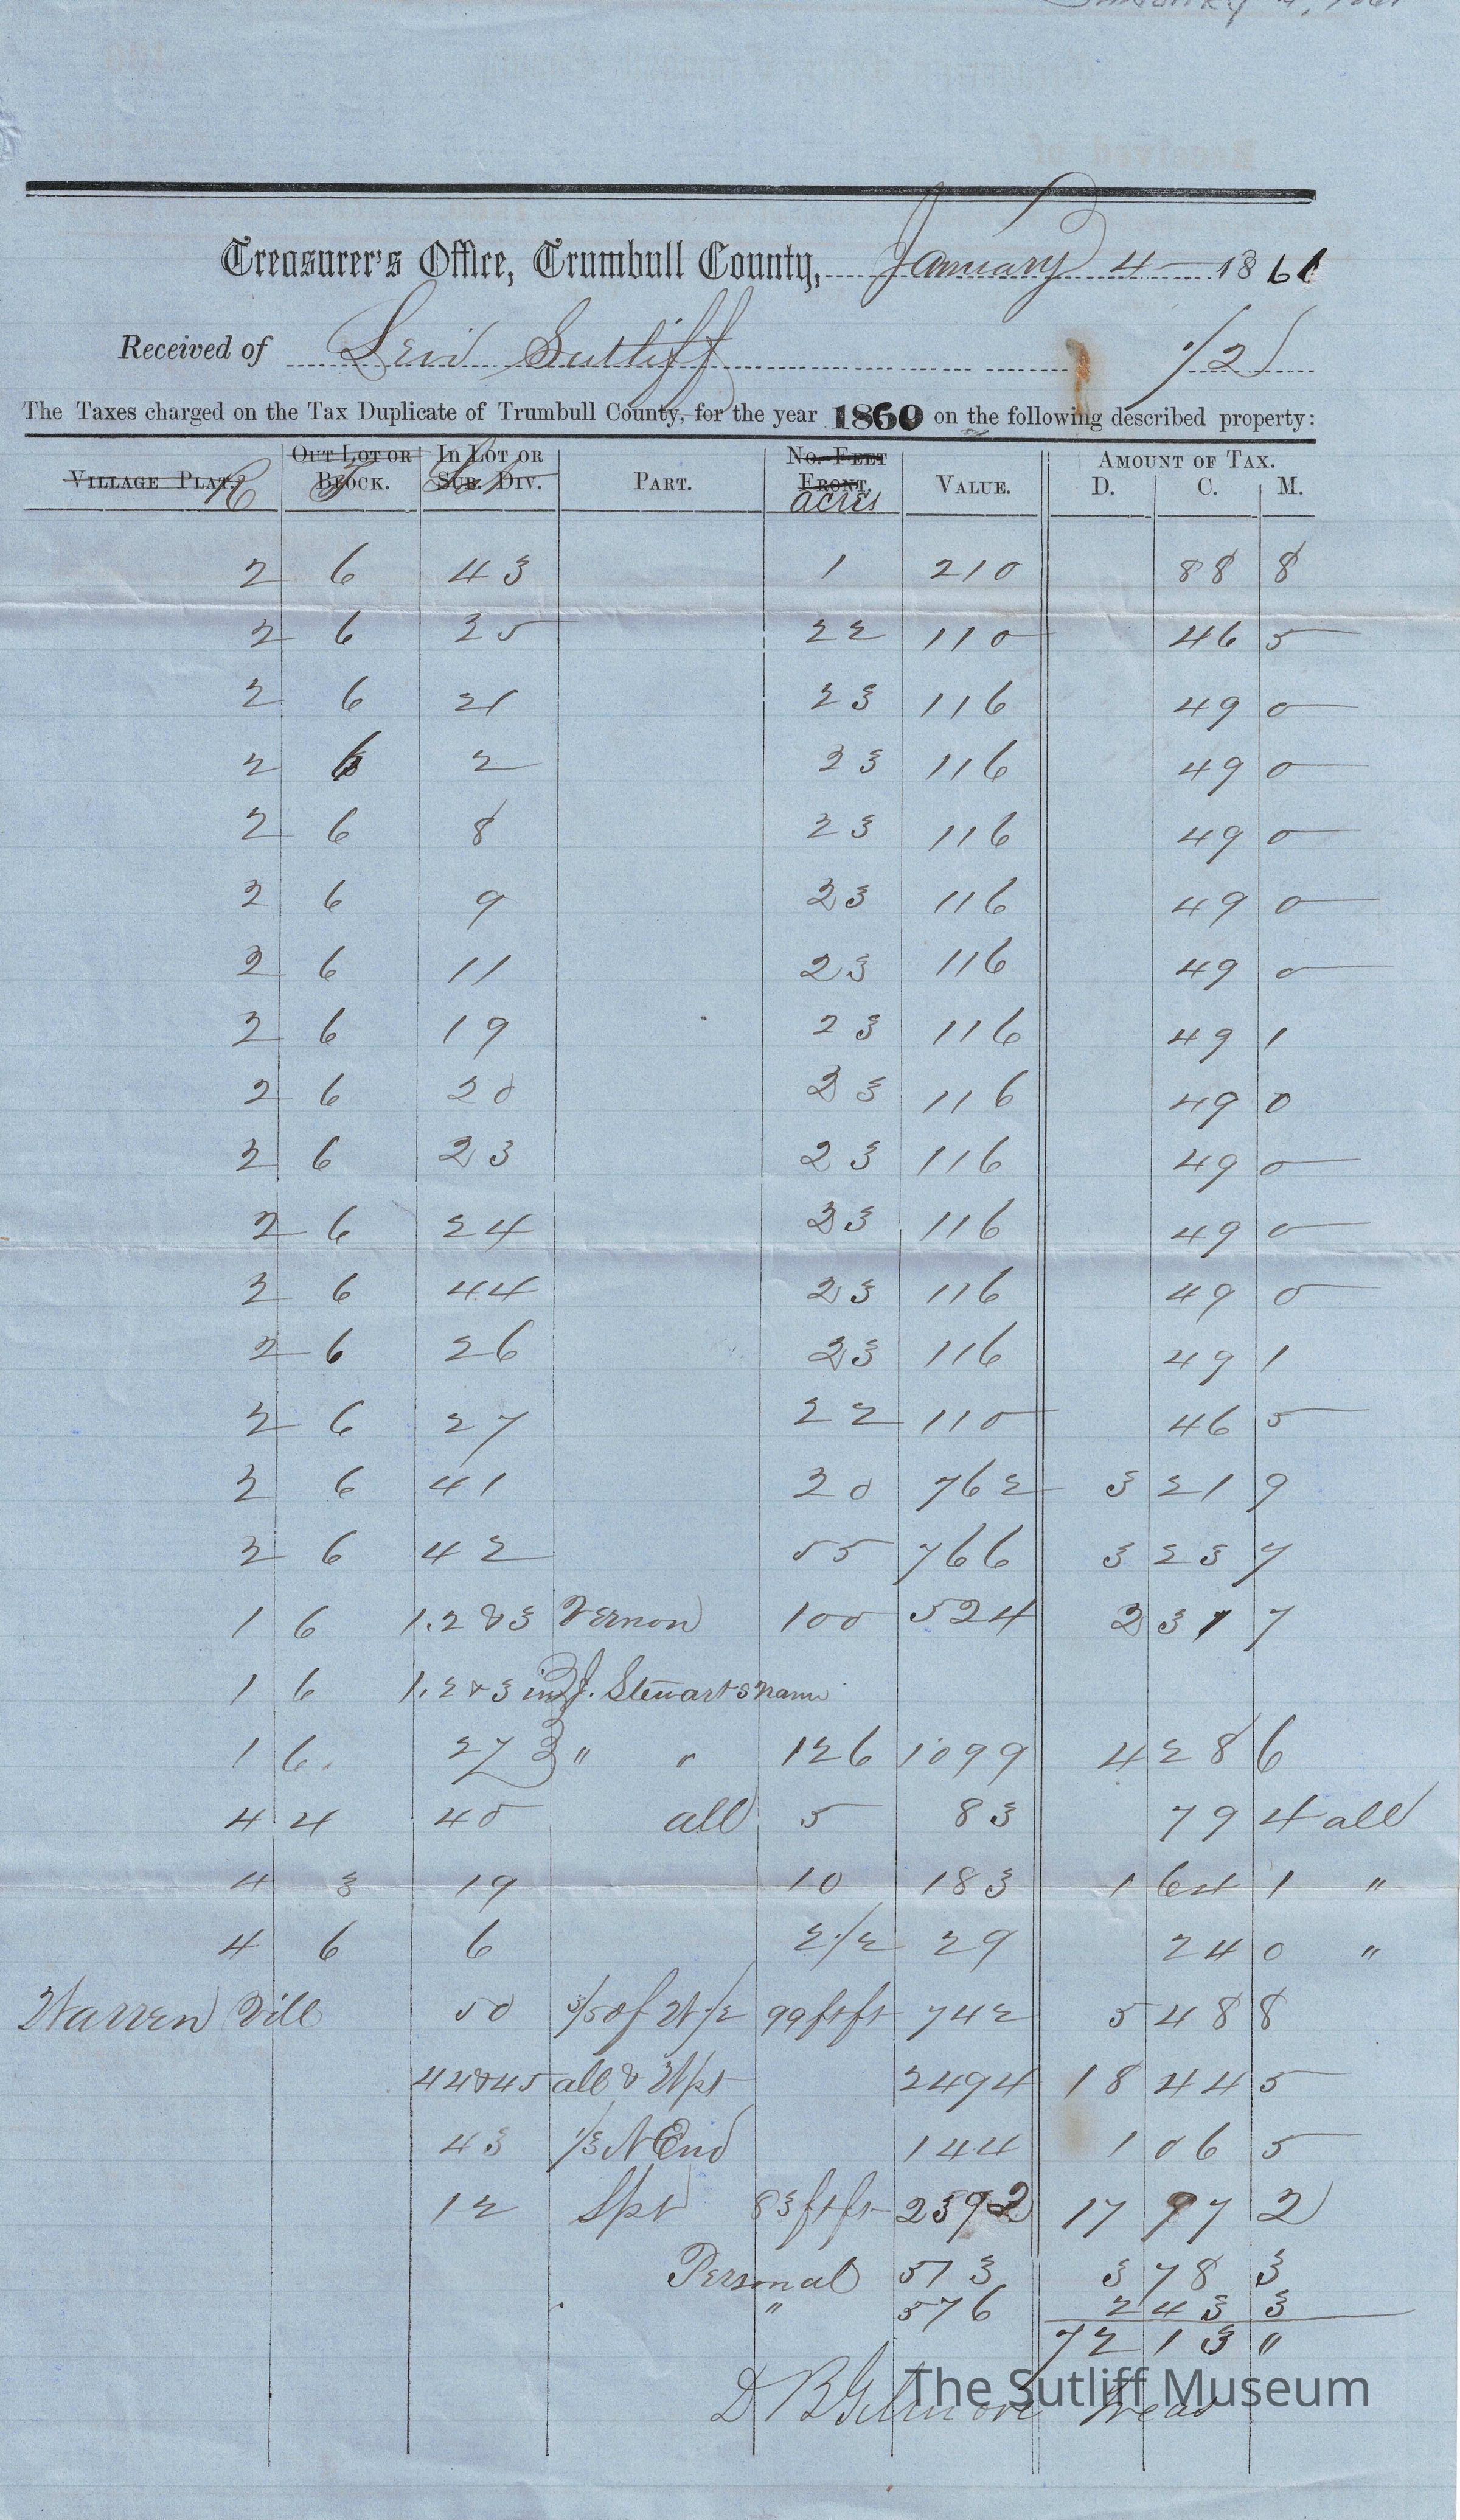 January 4, 1861
Treasurer's Office, Trumbull County, January 4 1861
Received of Levi Sutliff 1/2
The Taxes charged on the Tax Duplicate of Trumbull County, for the year 1860 on the following described property:
Village Plat. R Out Lot or Block. T In Lot or Sub. Div. Part. No. Feet Front. acres Value. Amount of Tax. D. C. M.
2 6 43 1 210 88 8
2 6 25 22 110 46 5
2 6 21 23 116 49 0
2 6 2 23 116 49 0
2 6 8 23 116 49 0
2 6 9 23 116 49 0
2 6 11 23 116 49 0
2 6 19 23 116 49 1
2 6 20 23 116 49 0
2 6 23 23 116 49 0
2 6 24 23 116 49 0
2 6 44 23 116 49 0
2 6 26 23 116 49 1
2 6 27 22 110 46 5
2 6 41 20 762 3 21 9
2 6 42 55 766 3 23 7
1 6 1.2 & 3 Vernon 100 524 2 31 7
1 6 1.2 & 3 in J. Stewarts name
1 6 27 " " 126 1099 4 28 6
4 4 40 all 5 83 79 4 all
4 3 19 10 183 1 64 1 "
4 6 6 2 1/2 29 24 0 "
Warren Vill 50 3/5 of W 1/2 99 ft fr 742 5 48 8
44 & 45 all & W pt 2494 18 44 5
43 1/3 N End 144 1 06 5
12 S pt 83 ft fr 2392 17 97 2
Personal 513 3 78 3
" 576 2 43 3
72 13 "
D B Gilmore Treas
The Sutliff Museum